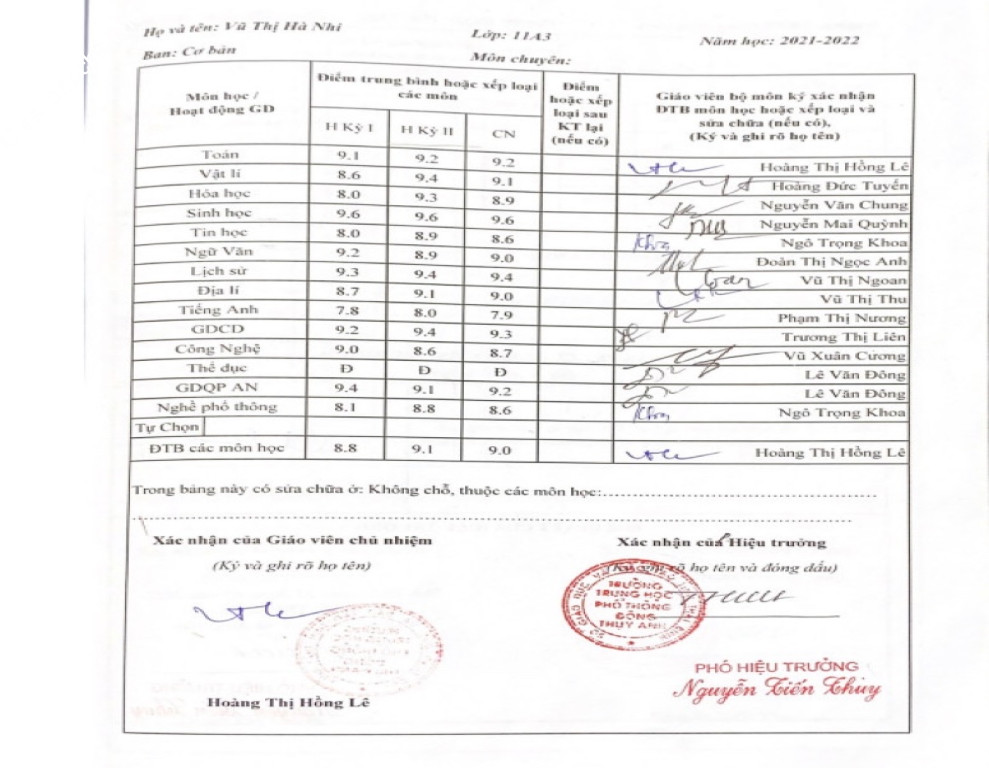 Họ và tên: Vũ Thị Hà Nhi Lớp: 11A3 Năm học: 2021-2022
Ban: Cơ bản Môn chuyên:
Môn học / Hoạt động GD
Điểm trung bình hoặc xếp loại các môn
Điểm hoặc xếp loại sau KT lại (nếu có)
Giáo viên bộ môn ký xác nhận ĐTB môn học hoặc xếp loại và sửa chữa (nếu có), (Ký và ghi rõ họ tên)
H Kỳ I H Kỳ II CN
Toán 9.1 9.2 9.2 Hoàng Thị Hồng Lê
Vật lí 8.6 9.4 9.1 Hoàng Đức Tuyến
Hóa học 8.0 9.3 8.9 Nguyễn Văn Chung
Sinh học 9.6 9.6 9.6 Nguyễn Mai Quỳnh
Tin học 8.0 8.9 8.6 Khoa Ngô Trọng Khoa
Ngữ Văn 9.2 8.9 9.0 Đoàn Thị Ngọc Anh
Lịch sử 9.3 9.4 9.4 Vũ Thị Ngoan
Địa lí 8.7 9.1 9.0 Vũ Thị Thu
Tiếng Anh 7.8 8.0 7.9 Phạm Thị Nương
GDCD 9.2 9.4 9.3 Trương Thị Liên
Công Nghệ 9.0 8.6 8.7 Vũ Xuân Cương
Thể dục Đ Đ Đ Lê Văn Đông
GDQP AN 9.4 9.1 9.2 Lê Văn Đông
Nghề phổ thông 8.1 8.8 8.6 Khoa Ngô Trọng Khoa
Tự Chọn
ĐTB các môn học 8.8 9.1 9.0 Hoàng Thị Hồng Lê
Trong bảng này có sửa chữa ở: Không chỗ, thuộc các môn học:
Xác nhận của Giáo viên chủ nhiệm Xác nhận của Hiệu trưởng
(Ký và ghi rõ họ tên) (Ký, ghi rõ họ tên và đóng dấu)
TRƯỜNG
TRUNG HỌC
PHỔ THÔNG
ĐÔNG
THỤY ANH
PHÓ HIỆU TRƯỞNG
Nguyễn Tiến Thùy
Hoàng Thị Hồng Lê